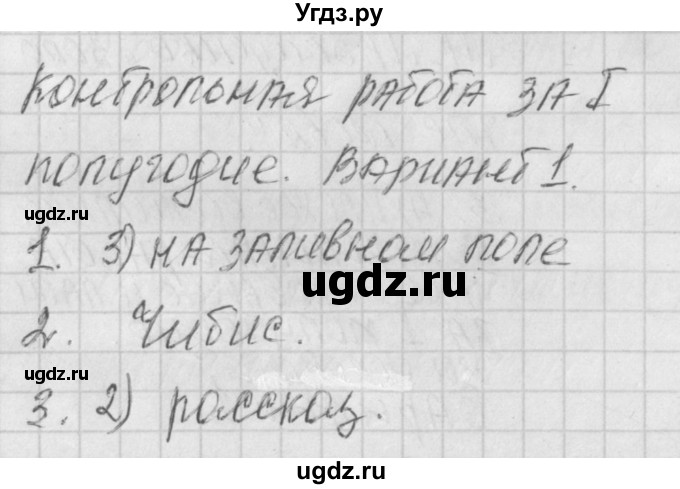 Угдз.ру
Контрольная работа за I
полугодие. Вариант 1.
ugdz.ru
1. 3) на заливном поле
ugdz.ru
ugdz.ru
2. Чибис.
ugdz.ru
3. 2) рассказ.
ugdz.ru